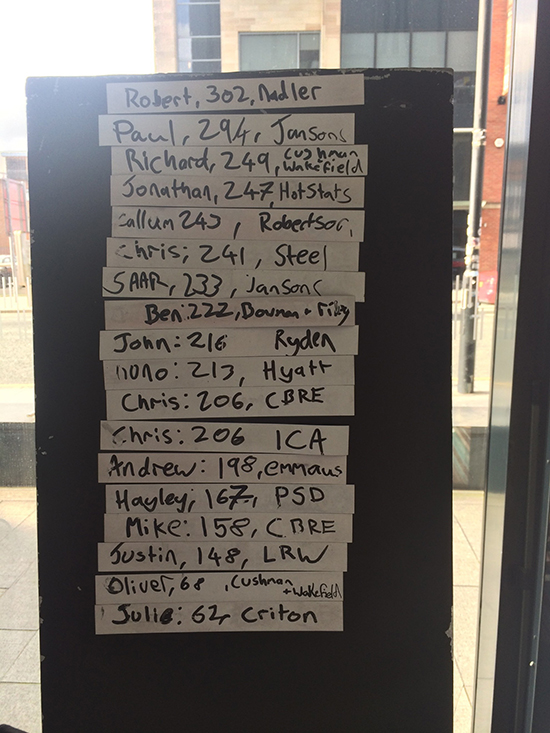 Robert, 302, Nadler
Paul, 294, Jansons
Richard, 249, Cushman Wakefield
Jonathan, 247, HotStats
Callum 243, Robertson,
Chris; 241, Steel
SAAR, 233, Jansons
Ben: 222, Bowman + Riley
John: 216 Ryden
nono: 213, Hyatt
Chris: 206, CBRE
Chris: 206 ICA
Andrew: 198, emmaus
Hayley, 167, PSD
Mike: 158, CBRE
Justin, 148, LRW
Oliver, 68, Cushman + Wakefield
Julie: 62, Criton